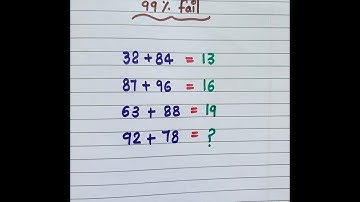 99% fail
38 + 84 = 13
87 + 96 = 16
63 + 88 = 19
92 + 78 = ?